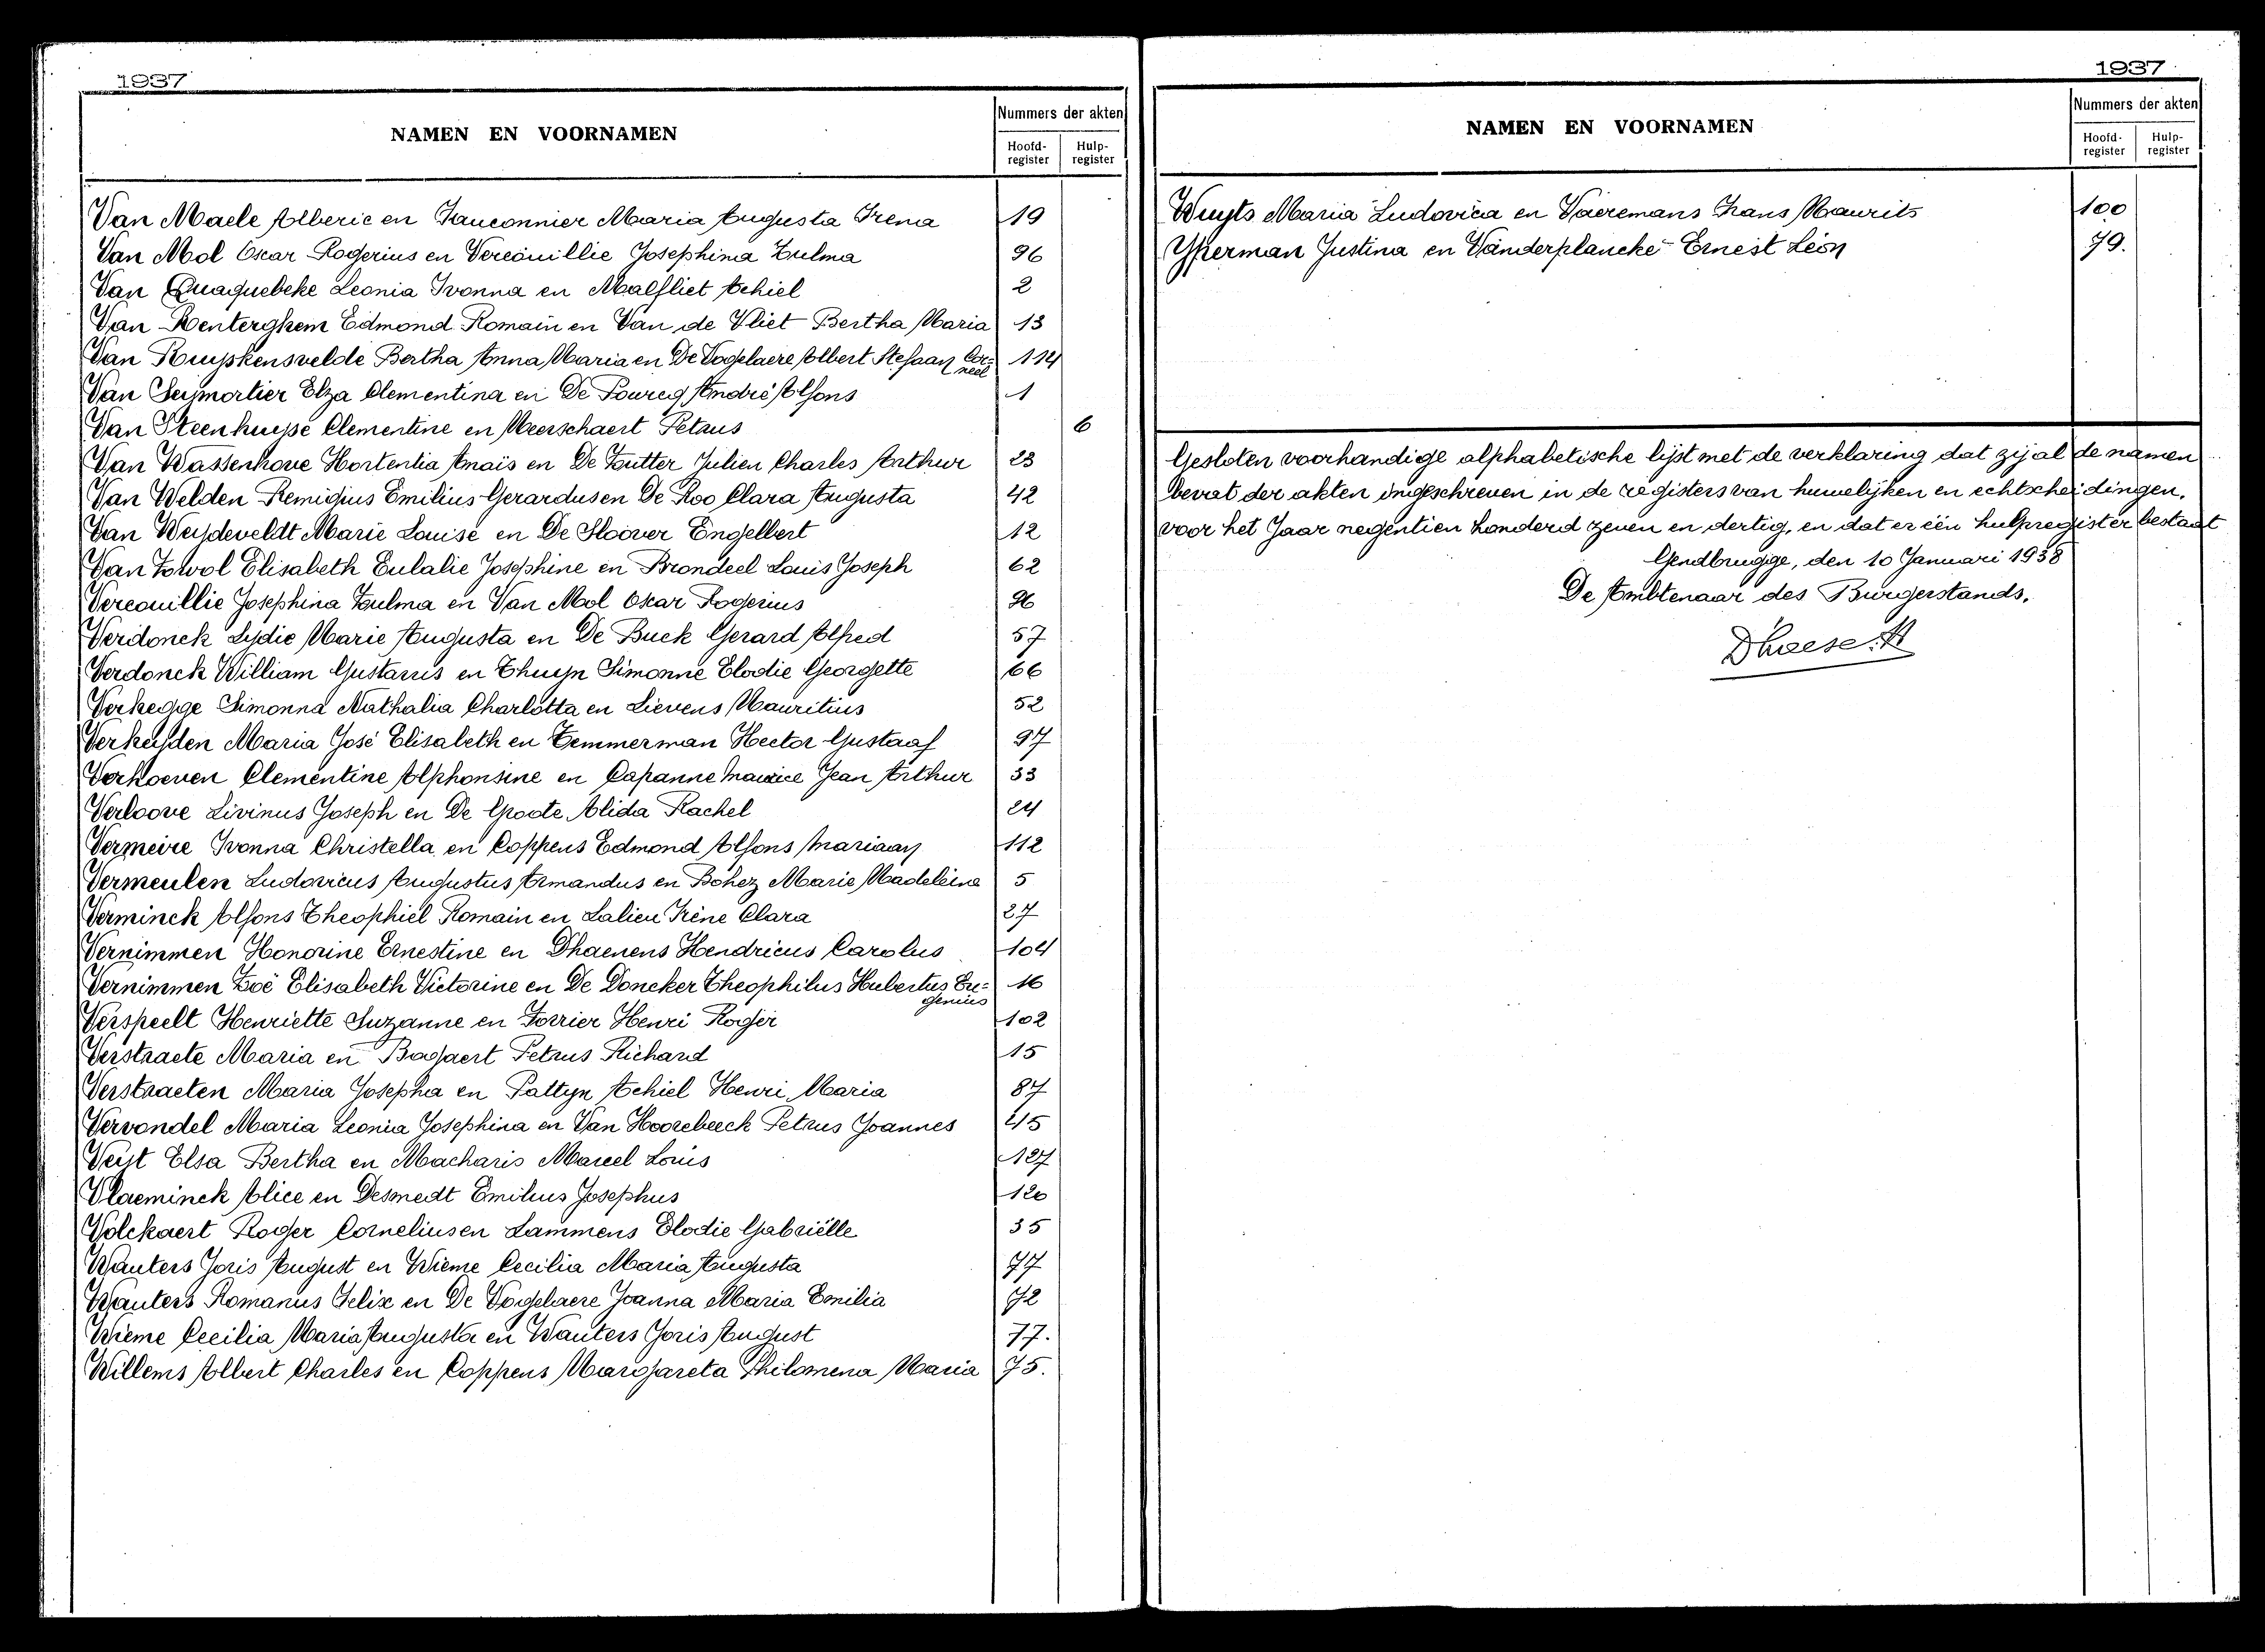 1937
NAMEN EN VOORNAMEN
Nummers der akten
Hoofd-register
Hulp-register
Van Maele Alberic en Fauconnier Maria Augusta Irena 19
Van Mol Oscar Rogerius en Vercouillie Josephina Zulma 96
Van Quaquebeke Leonia Ivonna en Malfliet Achiel 2
Van Renterghem Edmond Romain en Van de Vliet Bertha Maria 13
Van Ruyskensvelde Bertha Anna Maria en De Vogelaere Albert Stefaan Cor= 114
neel
Van Seymortier Elza Clementina en De Poureq André Alfons 1
Van Steenhuyse Clementine en Meerschaert Petrus 6
Van Wassenhove Hortentia Anaïs en De Sutter Julien Charles Arthur 23
Van Welden Remigius Emilius Gerardus en De Roo Clara Augusta 42
Van Weydeveldt Marie Louise en De Sloover Engelbert 12
Van Zowol Elisabeth Eulalie Josephine en Brondeel Louis Joseph 62
Vercouillie Josephina Zulma en Van Mol Oscar Rogerius 96
Verdonck Lydie Marie Augusta en De Buck Gerard Alfred 57
Verdonck William Gustavus en Thuyn Simonne Elodie Georgette 66
Verhegge Simonna Nathalia Charlotta en Lievens Mauritius 52
Verheyden Maria José Elisabeth en Temmerman Hector Gustaaf 97
Verhoeven Clementine Alphonsine en Capanne Maurice Jean Arthur 33
Verloove Livinus Joseph en De Groote Alida Rachel 24
Vermeire Ivonna Christella en Coppens Edmond Alfons Mariaan 112
Vermeulen Ludovicus Augustus Armandus en Bohez Marie Madeleine 5
Verminck Alfons Theophiel Romain en Lalieu Irène Clara 27
Vernimmen Honorine Ernestine en Dhaenens Hendricus Carolus 104
Vernimmen Zoë Elisabeth Victorine en De Doncker Theophilus Hubertus Eu= 16
genius
Verspeelt Henriette Suzanne en Forrier Henri Roger 102
Verstraete Maria en Bagaert Petrus Richard 15
Verstraeten Maria Josepha en Pattyn Achiel Henri Maria 87
Vervondel Maria Leonia Josephina en Van Hoorebeeck Petrus Joannes 45
Veyt Elsa Bertha en Macharis Marcel Louis 127
Vlaeminck Alice en Desmedt Emilius Josephus 120
Volckaert Roger Cornelius en Lammens Elodie Gabriëlle 35
Wauters Joris August en Wieme Cecilia Maria Augusta 77
Wauters Romanus Felix en De Vogelaere Joanna Maria Emilia 72
Wieme Cecilia Maria Augusta en Wauters Joris August 77.
Willems Albert Charles en Coppens Margareta Philomena Maria 75.
1937
NAMEN EN VOORNAMEN
Nummers der akten
Hoofd-register
Hulp-register
Wuyts Maria Ludovica en Vaeremans Frans Maurits 100
Yperman Justina en Vanderplancke Ernest Léon 79.
Gesloten voorhandige alphabetische lijst met de verklaring dat zij al de namen
bevat der akten ingeschreven in de registers van huwelijken en echtscheidingen,
voor het Jaar negentien honderd zeven en dertig, en dat er één hulpregister bestaat
Gendbrugge, den 10 Januari 1938
De Ambtenaar des Burgerstands,